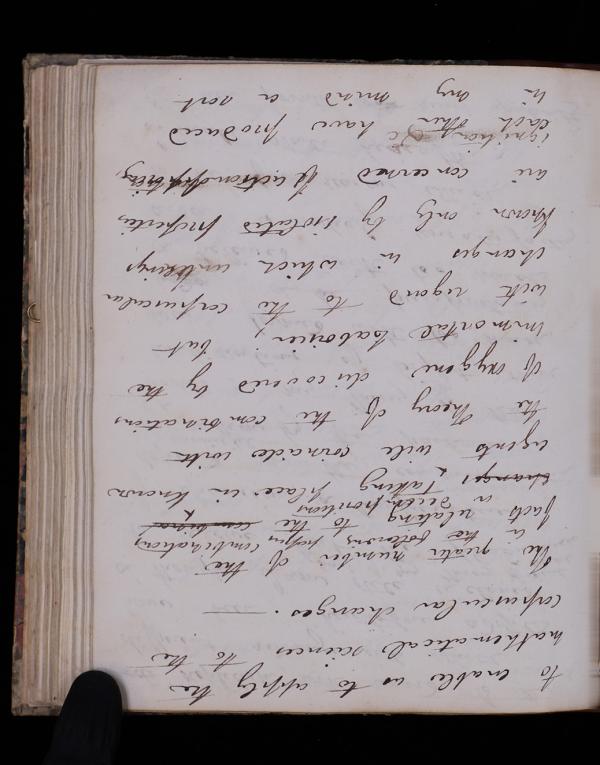 to enable us to apply the
mathematical sciences to the
corpuscular changes. —
The greater number of the
in the following pages
facts relating to the combinations
a decompositions
changes taking place in known
agents will coincide with
the Theory of the combinations
of oxygene discovered by the
immortal Lavoisier; but
with regard to the corpuscular
changes in which
known only by isolated properties
are concerned
ignition &c have produced
each other
in my mind a sort